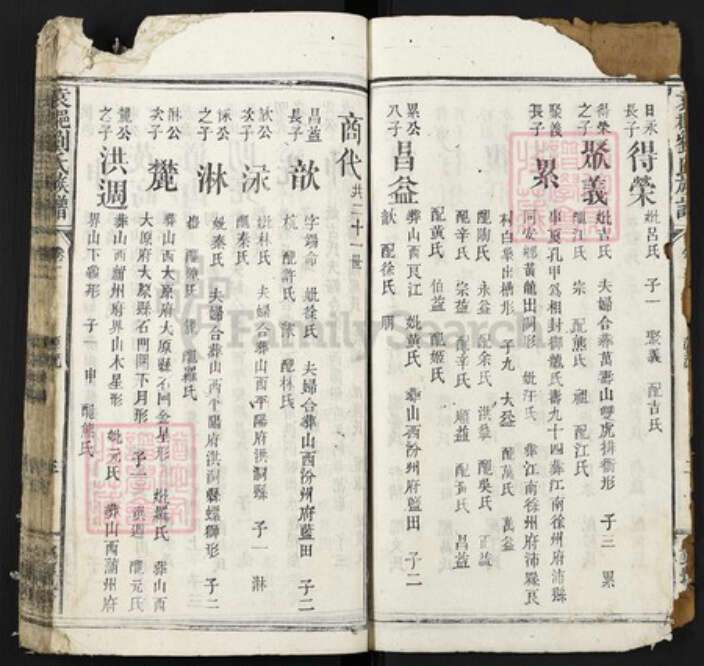 日永
長子
得榮
妣呂氏 子一 聚義 配吉氏
得榮
之子
聚義
妣吉氏 夫婦合葬萬壽山雙虎排衙形 子三 累
配江氏 宗 配熊氏 祖 配江氏
聚義
長子
累
事夏孔甲爲相封御龍氏壽九十四葬江南徐州府沛縣
同安鄉黃龍出洞形 妣汪氏 葬江南徐州府沛縣民
村白象出槽形 子九 大益 配萬氏 萬益
配陶氏 永益 配余氏 洪益 配吳氏
配辛氏 宗益 配辛氏 順益 配黃氏 昌益
配黃氏 伯益 配姬氏
累公
八子
昌益
葬山西 江 妣黃氏 葬山西汾州府藍田 子二
歆 配徐氏
商代
共二十一世
昌益
長子
歆
字錫命 妣徐氏 夫婦合葬山西汾州府藍田 子二
配許氏 泳 配林氏
歆公
次子
泳
妣林氏 夫婦合葬山西平陽府洪洞縣 子一 淋
配秦氏
泳公
之子
淋
妣秦氏 夫婦合葬山西平陽府洪洞縣螺獅形 子二
氏 麓 配羅氏
淋公
次子
麓
葬山西大原府大原縣石 金星形 妣羅氏 葬山西
大原府大原縣石門關下月形 子一 洪週 配元氏
麓公
之子
洪週
葬山西蒲州府界山木星形 妣元氏 葬山西蒲州府
界山下 形 子一 申 配熊氏
袁郡劉氏族譜
卷一
FamilySearch